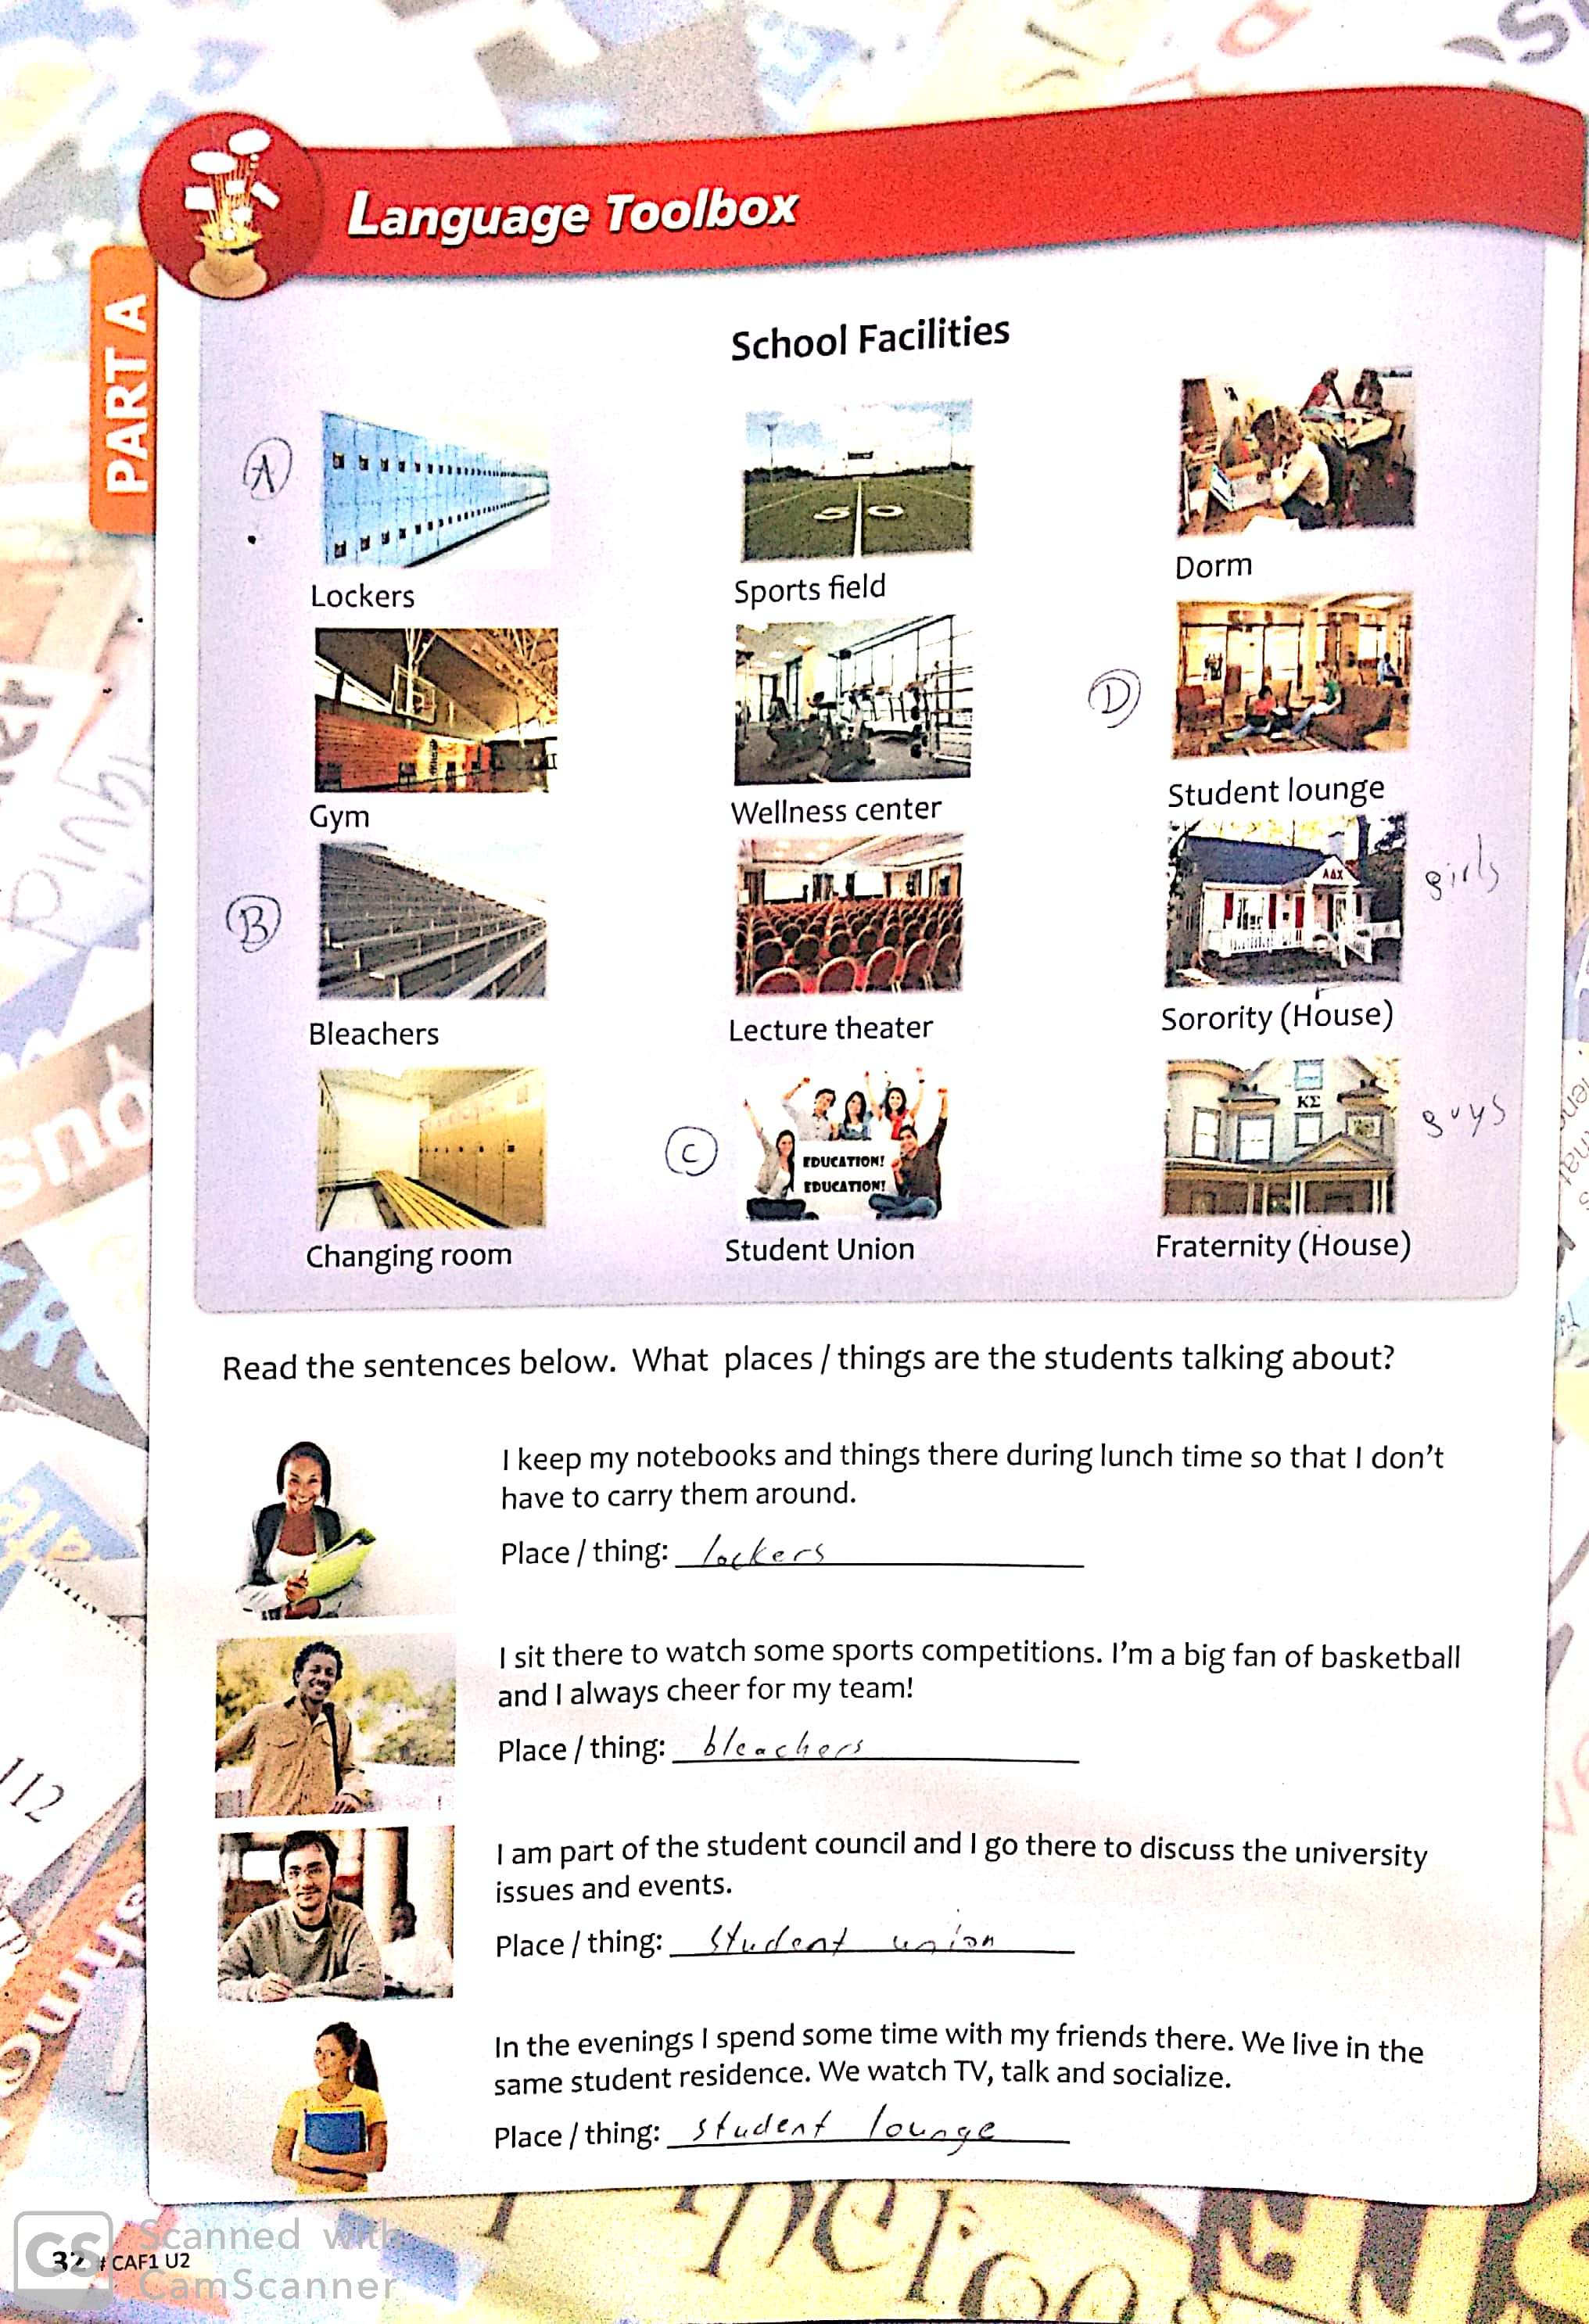 Language Toolbox
PART A
School Facilities
A
Lockers
Sports field
Dorm
Gym
Wellness center
D
Student lounge
B
Bleachers
Lecture theater
ΑΔΧ
girls
Sorority (House)
Changing room
C
EDUCATION!
EDUCATION!
Student Union
ΚΣ
guys
Fraternity (House)
Read the sentences below. What places / things are the students talking about?
I keep my notebooks and things there during lunch time so that I don't
have to carry them around.
Place / thing: lockers
I sit there to watch some sports competitions. I'm a big fan of basketball
and I always cheer for my team!
Place / thing: bleachers
I am part of the student council and I go there to discuss the university
issues and events.
Place / thing: student union
In the evenings I spend some time with my friends there. We live in the
same student residence. We watch TV, talk and socialize.
Place / thing: student lounge
112
32 # CAF1 U2
CS Scanned with
CamScanner